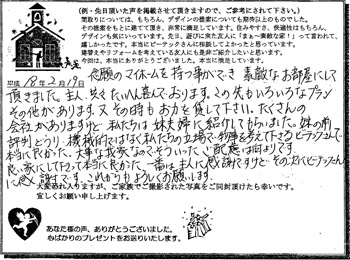 (例・先日頂いた声を掲載させて頂きますので、ご参考にされて下さい。)
間取りについては、もちろん、デザインの提案についても期待以上のものでした。
その提案をもとに建てて頂き、非常に満足しています。住みやすさ、快適性はもちろん、
デザインも気に入っています。先日、遊びに来た友人に「まぁー素敵な家!」って言われて、
嬉しかったです。本当にピーテックさんに相談してよかったと思っています。
建替えやリフォームを考えている友人にも是非ご紹介したいと思います。
今回は、本当にありがとうございました。本当に満足しています。
平成18年2月19日
念願のマイホームを持つ事ができ 素敵なお部屋にして
頂きました。主人、共々 たいへん喜んでおります。この先もいろいろなプラン
その他があります。又その時もお力を貸して下さい。たくさんの
会社がありますけど 私たちは妹夫婦に紹介してもらいました。妹の所
評判どうり、機械的にではなく私たちの立場で物事を考えて下さるピーテックさんで
本当に良かった。大事な我家なのでそういったご配慮は助かります。
良い家にして下さって本当に良かった。一番は主人に感謝ですけど その次にピーテックさん
に感謝です。これからもよろしくお願いします。
大変恐れ入りますが、ご家族でご撮影された写真をご同封頂けたら幸いです。
宜しくお願い申し上げます。
あなた様の声、ありがとうございました。
もばかりのプレゼントをお送りいたします。